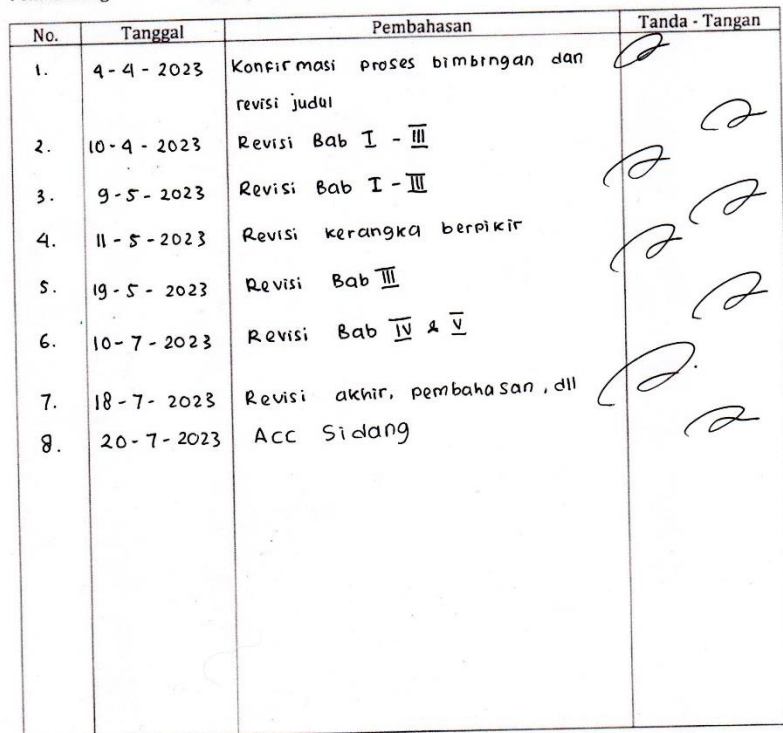 No. Tanggal Pembahasan Tanda - Tangan
1. 4-4-2023 Konfirmasi proses bimbingan dan
revisi judul
2. 10-4-2023 Revisi Bab I - III
3. 9-5-2023 Revisi Bab I - III
4. 11-5-2023 Revisi kerangka berpikir
5. 19-5-2023 Revisi Bab III
6. 10-7-2023 Revisi Bab IV & V
7. 18-7-2023 Revisi akhir, pembahasan, dll
8. 20-7-2023 Acc Sidang